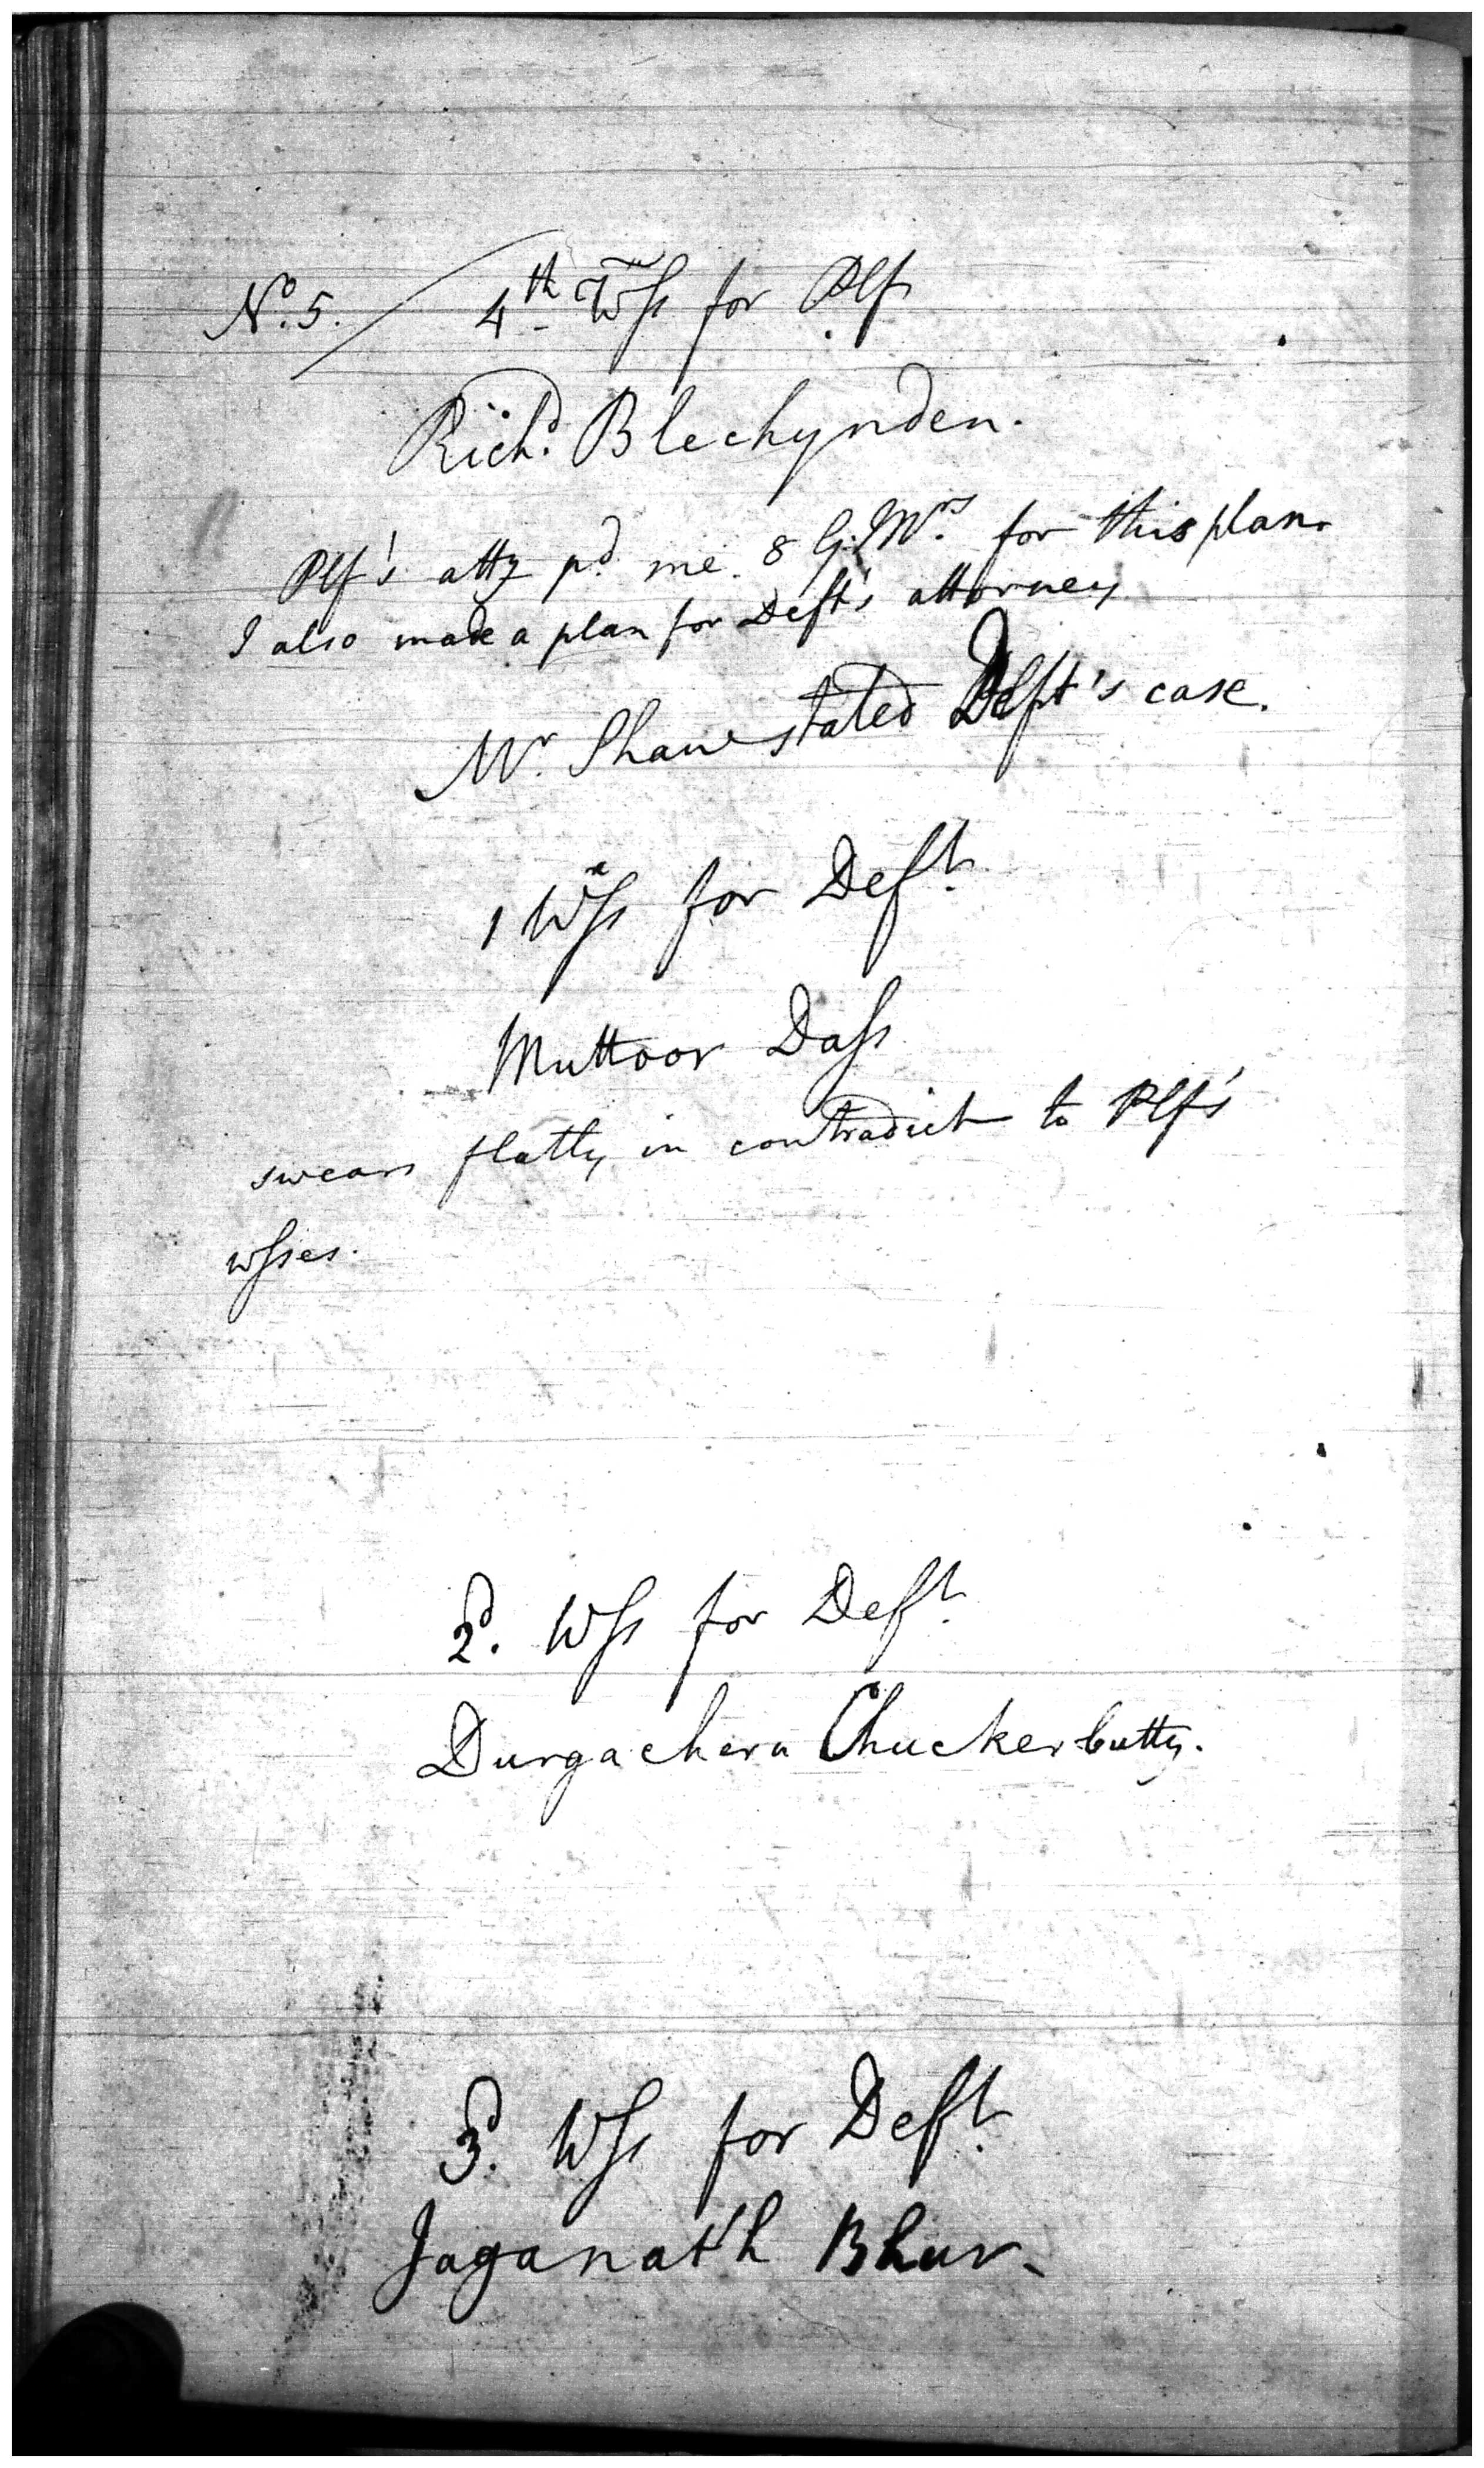 No. 5. / 4th Wss for Plf
Richd. Blechynden.
Plf's atty pd. me. 8 G. Mrs. for this plan.
I also made a plan for Deft's attorney
Mr. Shaw stated Deft's case.
1 Wss for Deft.
Muttoor Dass
swears flatly in contradict to Plf's
wsses.
2d. Wss for Deft.
Durgachern Chuckerbutty.
3d. Wss for Deft.
Jaganath Bhur